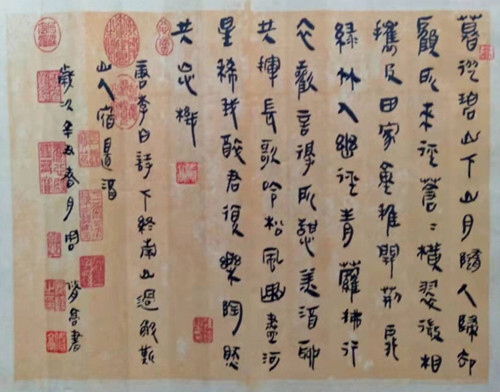 暮從碧山下山月隨人歸卻
顧所來徑蒼〻橫翠微相
攜及田家童稚開荊扉
綠竹入幽徑青蘿拂行
衣歡言得所憩美酒聊
共揮長歌吟松風曲盡河
星稀我醉君復樂陶然
共忘機
唐李白詩下終南山過斛斯
山人宿置酒
歲次辛丑春月 書